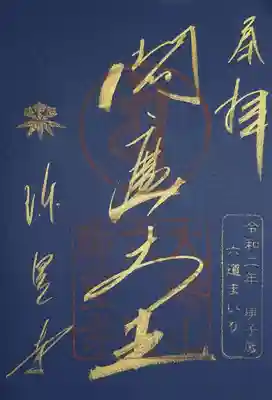 奉拝
令和二年 庚子歳
六道まいり
閻魔大王
珍皇寺